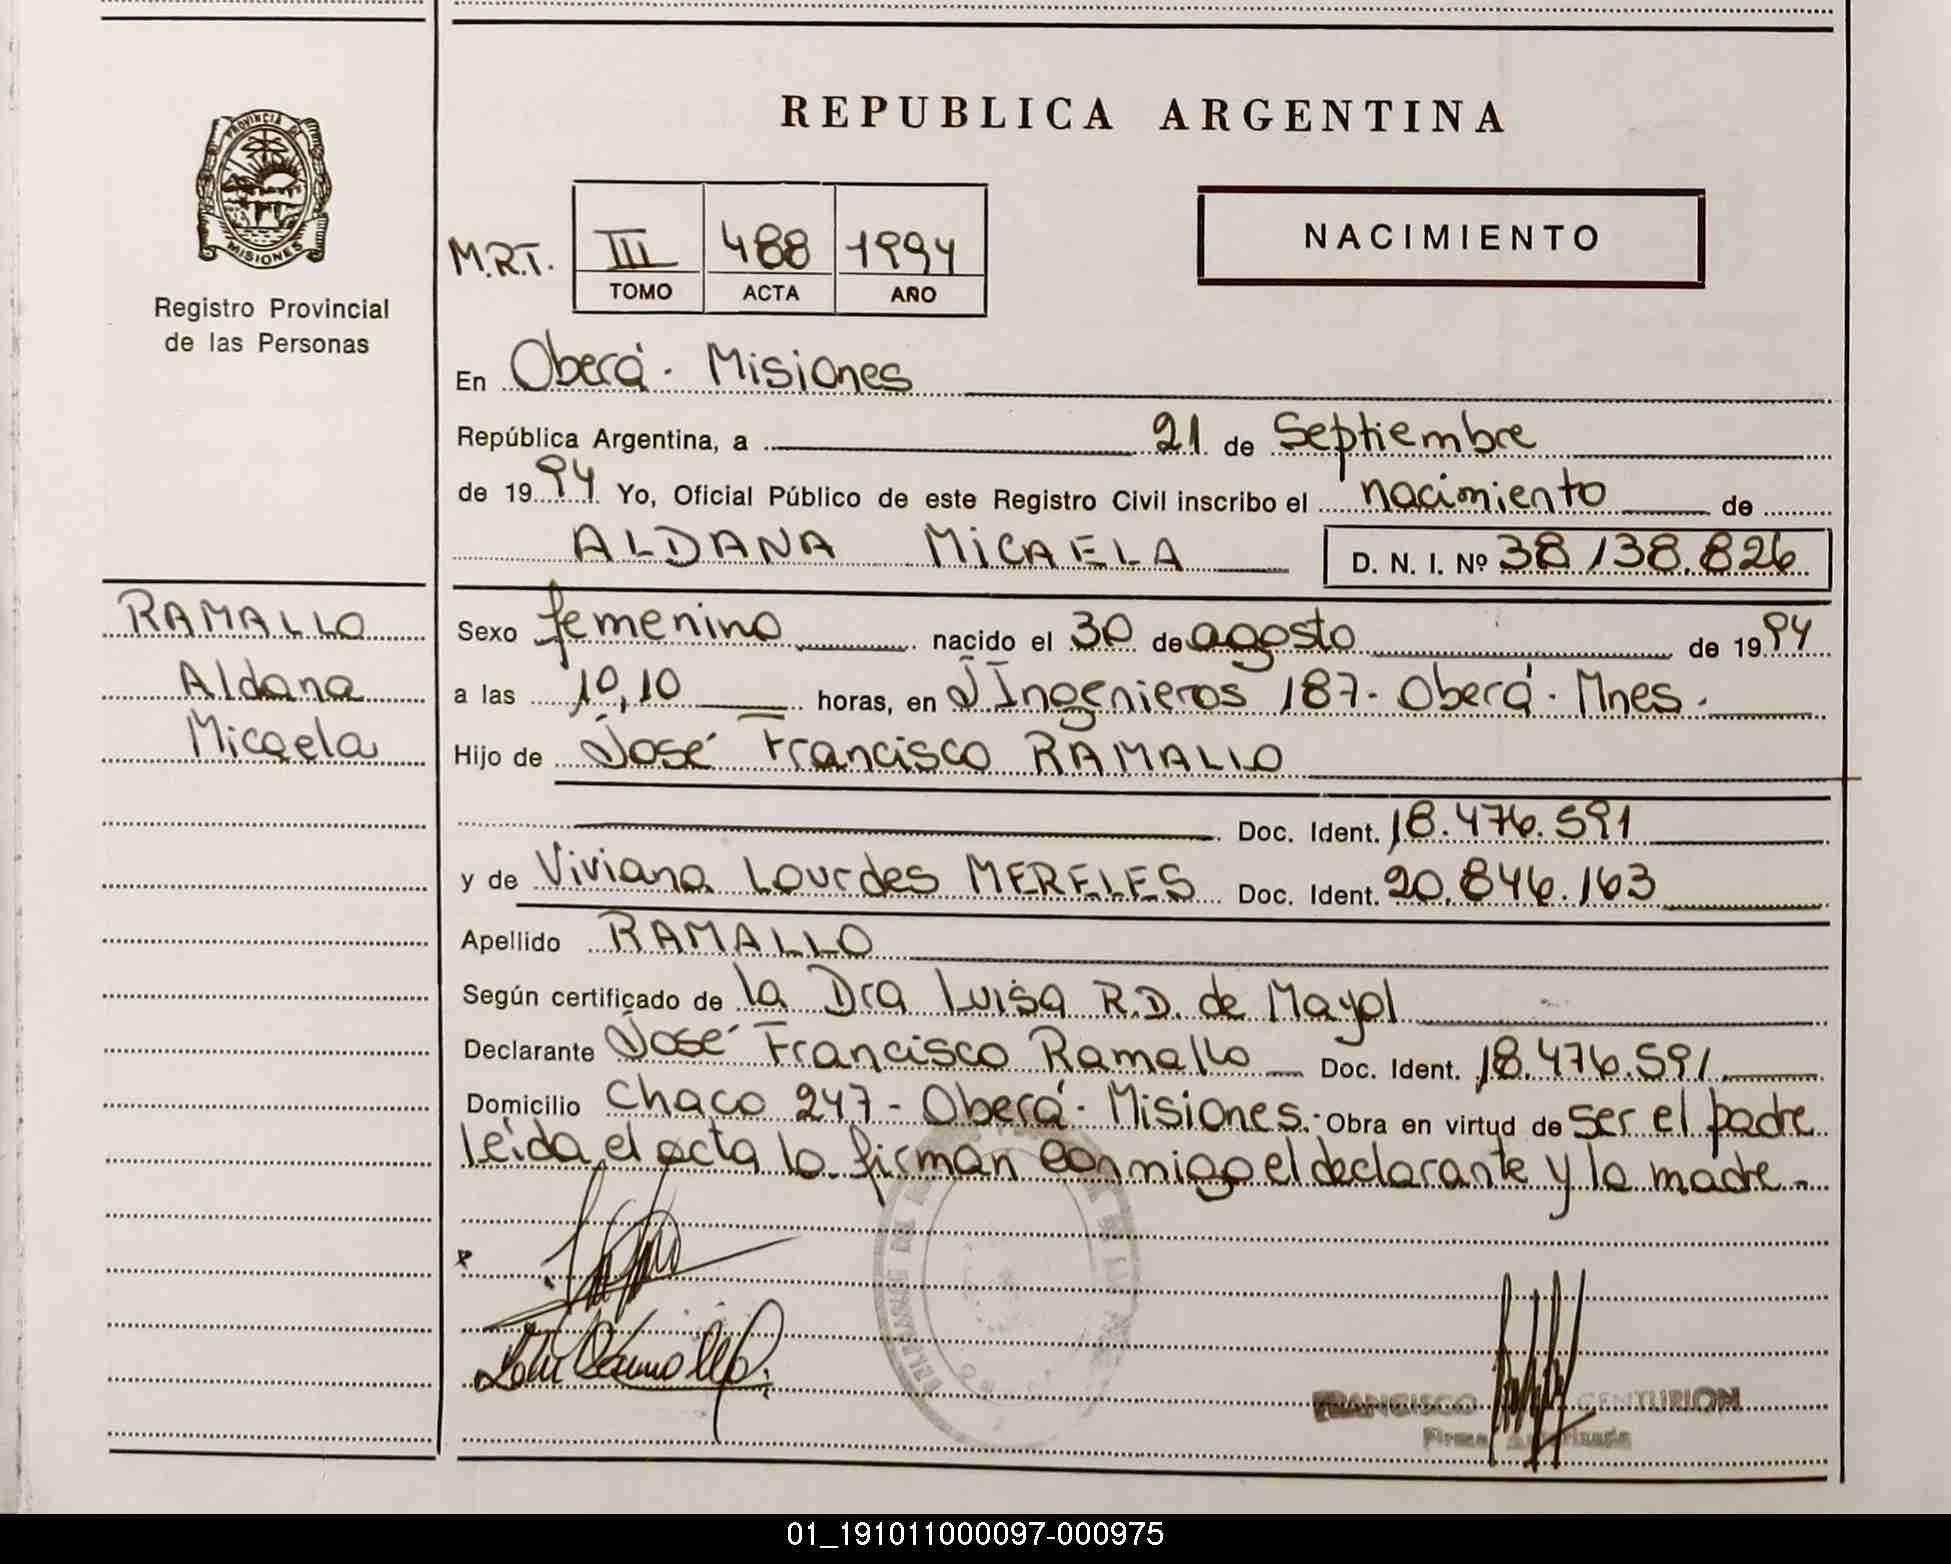 REPUBLICA ARGENTINA
PROVINCIA DE
MISIONES
Registro Provincial
de las Personas
M.R.T.
III 488 1994
TOMO ACTA AÑO
NACIMIENTO
En Oberá - Misiones
República Argentina, a 21 de Septiembre
de 1994 Yo, Oficial Público de este Registro Civil inscribo el nacimiento de
ALDANA MICAELA D. N. I. Nº 38/138.826
RAMALLO
Aldana
Micaela
Sexo femenino nacido el 30 de agosto de 1994
a las 10,10 horas, en J Ingenieros 187 - Oberá - Mnes.
Hijo de José Francisco RAMALLO
Doc. Ident. 18.476.591
y de Viviana Lourdes MERELES Doc. Ident. 20.846.163
Apellido RAMALLO
Según certificado de la Dra Luisa R.D. de Mayol
Declarante José Francisco Ramallo Doc. Ident. 18.476.591
Domicilio Chaco 247 - Oberá - Misiones.- Obra en virtud de ser el padre
leída el acta la firman conmigo el declarante y la madre.-
FRANCISCO CENTURION
Firma Autorizada
01_191011000097-000975